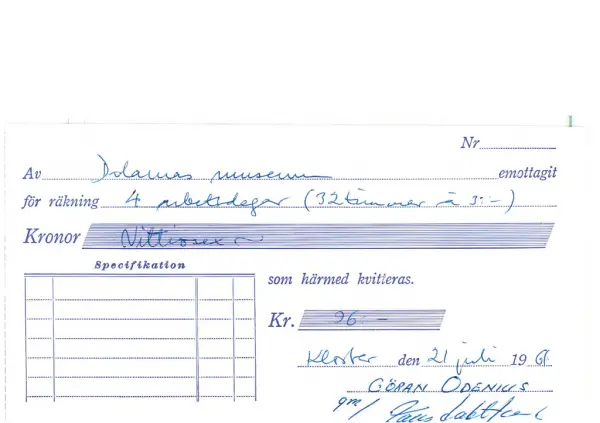 Nr
Av Dalarnas museum emottagit
för räkning 4 arbetsdagar (32 timmar à 3:-)
Kronor Nittiosex
Specifikation
som härmed kvitteras.
Kr. 96:-
Kloster den 21 juli 1961.
GÖRAN ODENIUS
gm/